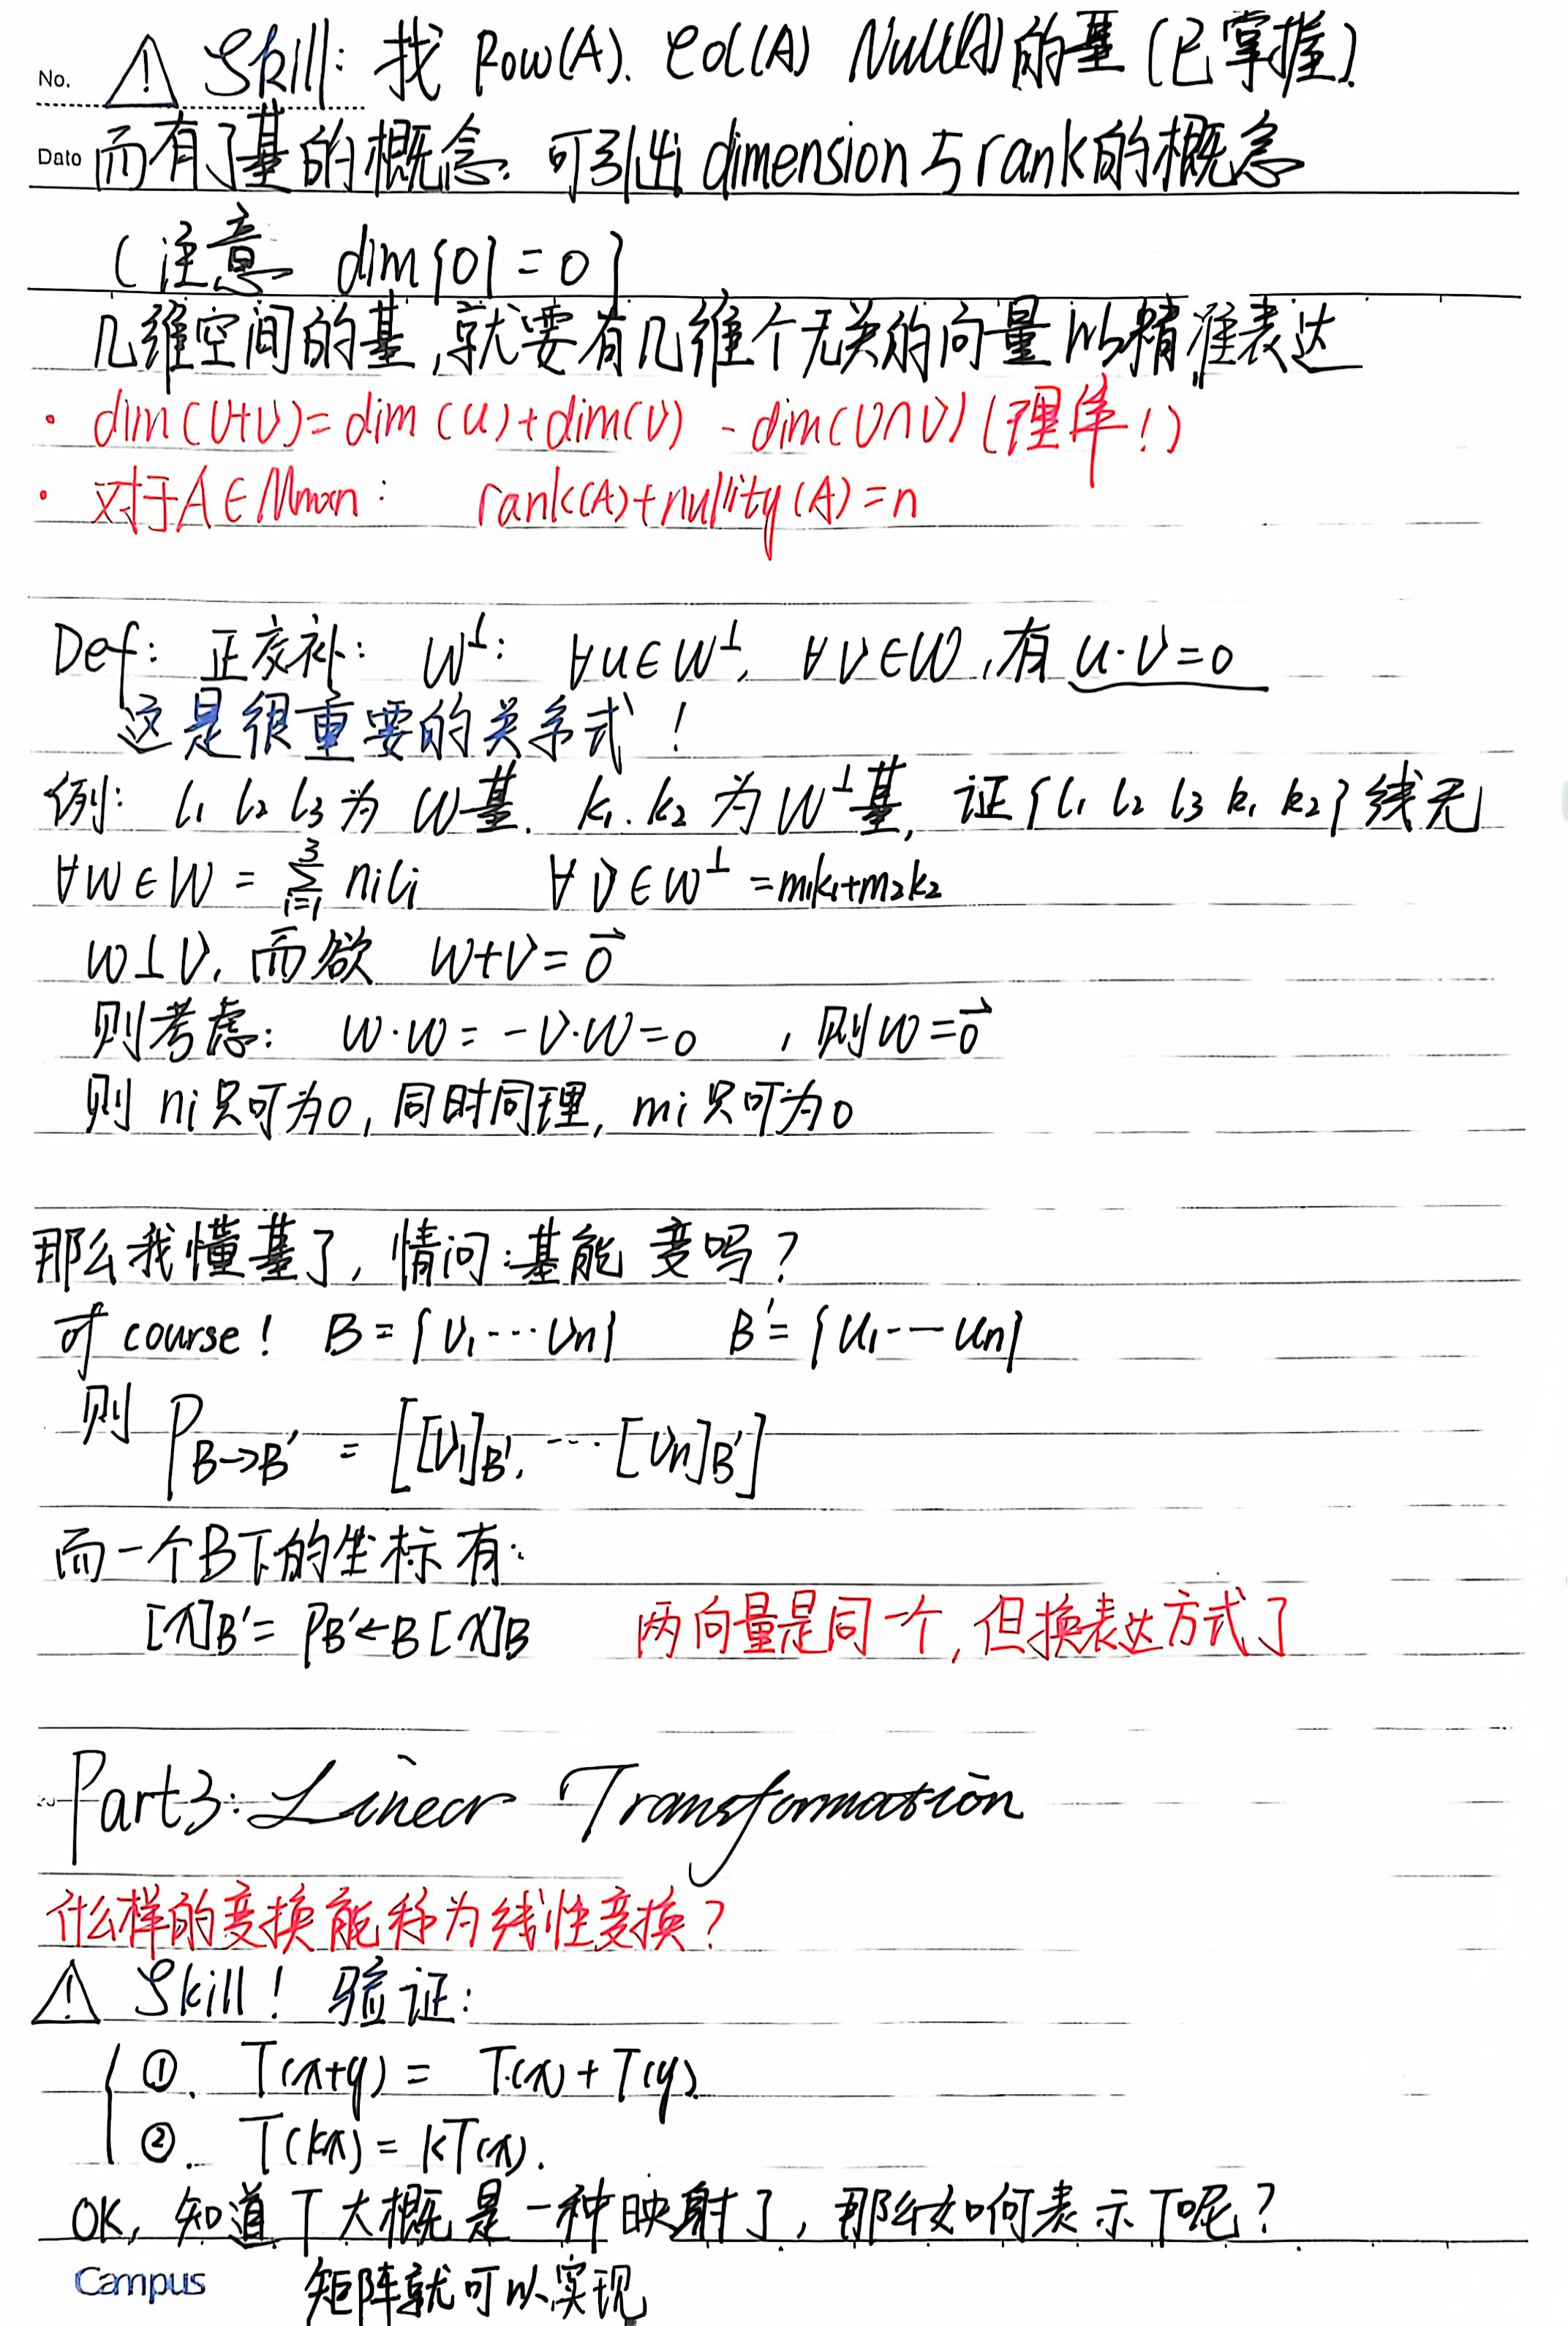 No. ⚠ Skill: 找 Row(A). Col(A) Null(A)的基 (已掌握).
Date 而有了基的概念. 可引出 dimension 与 rank的概念
(注意 dim{0} = 0)
几维空间的基,就要有几维个无关的向量以精准表达
· dim(U+V) = dim(U)+dim(V) - dim(U∩V) (理解!)
· 对于A∈Mmxn: rank(A)+nullity(A)=n
Def: 正交补: W⊥: ∀u∈W⊥, ∀v∈W,有 u·v=0
这是很重要的关系式!
例: l₁ l₂ l₃ 为 W基. k₁. k₂ 为 W⊥基, 证{l₁ l₂ l₃ k₁ k₂}线无
∀w∈W = ∑³ᵢ₌₁ nᵢlᵢ ∀v∈W⊥ =m₁k₁+m₂k₂
w⊥v, 而欲 w+v=0⃗
则考虑: w·w = -v·w=0 , 则w=0⃗
则 ni只可为0, 同时同理, mi只可为0
那么我懂基了, 情问:基能 变吗?
of course! B={v₁···vn} B'={u₁---un}
则 P B→B' = [[v₁]B', ···[vn]B']
而一个B下的坐标有:
[x]B'= PB'←B [x]B 两向量是同一个, 但换表达方式了
Part3: Linear Transformation
什么样的变换能称为线性变换?
⚠ Skill! 验证:
①. T(x+y) = T(x)+T(y)
②. T(kx) = kT(x).
OK, 知道T大概是一种映射了, 那么如何表示T呢?
Campus 矩阵就可以实现